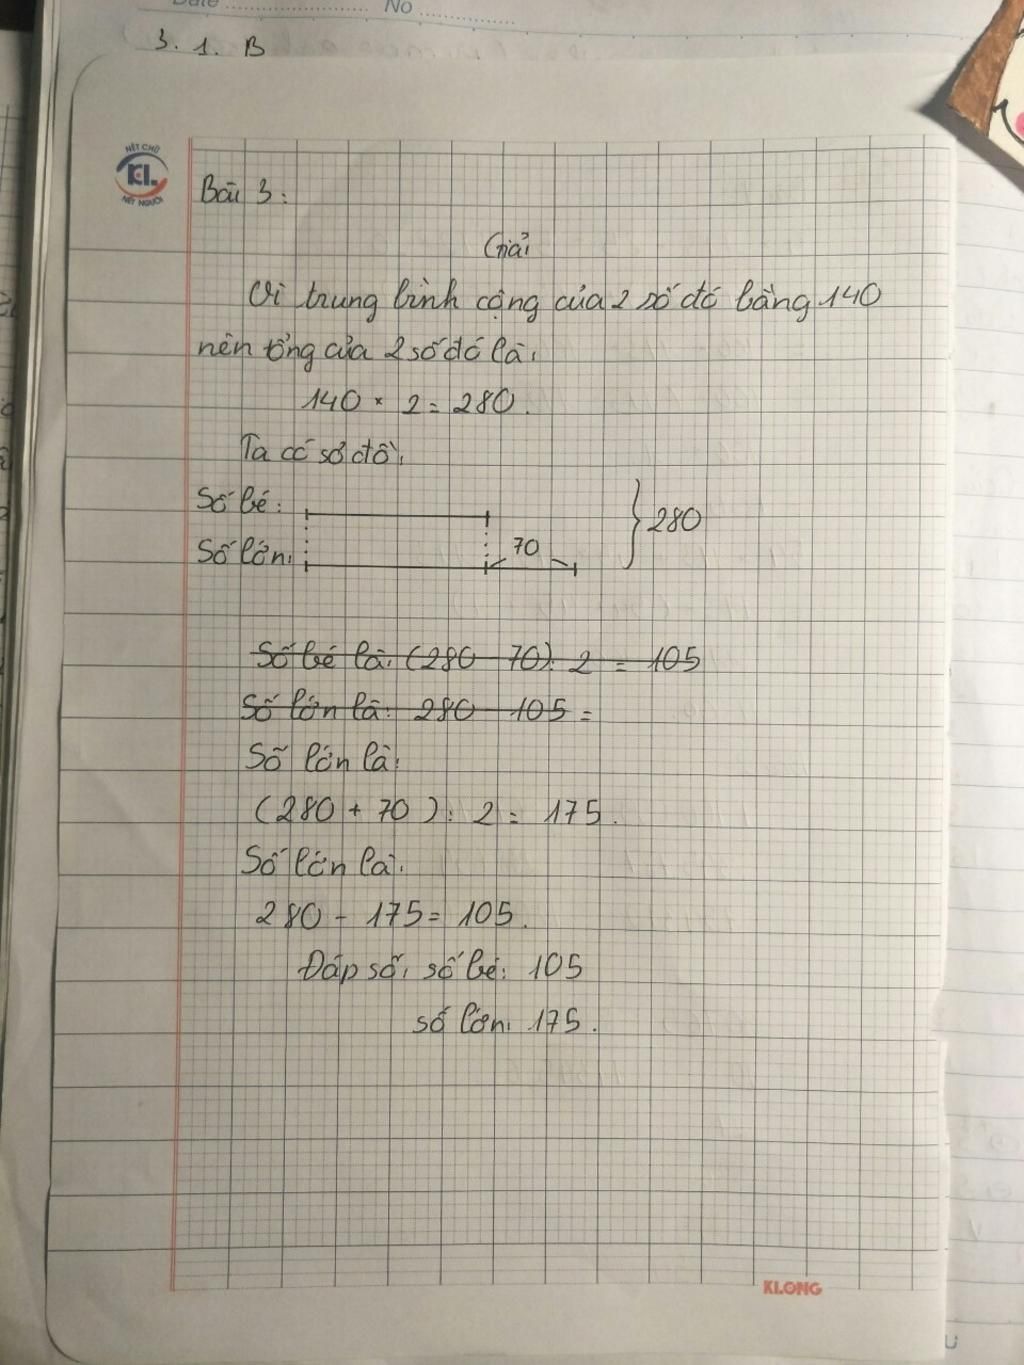 Date ........................ No ................
3. 1. B
NÉT CHỮ
KL
NẾT NGƯỜI
Bài 3:
Giải
Vì trung bình cộng của 2 số đó bằng 140
nên tổng của 2 số đó là:
140 × 2 = 280.
Ta có sơ đồ:
Số bé: } 280
Số lớn: 70
Số bé là: (280 - 70): 2 = 105
Số lớn là: 280 - 105 =
Số lớn là:
(280 + 70): 2 = 175.
Số lớn là:
280 - 175 = 105.
Đáp số: số bé: 105
số lớn: 175.
KLONG